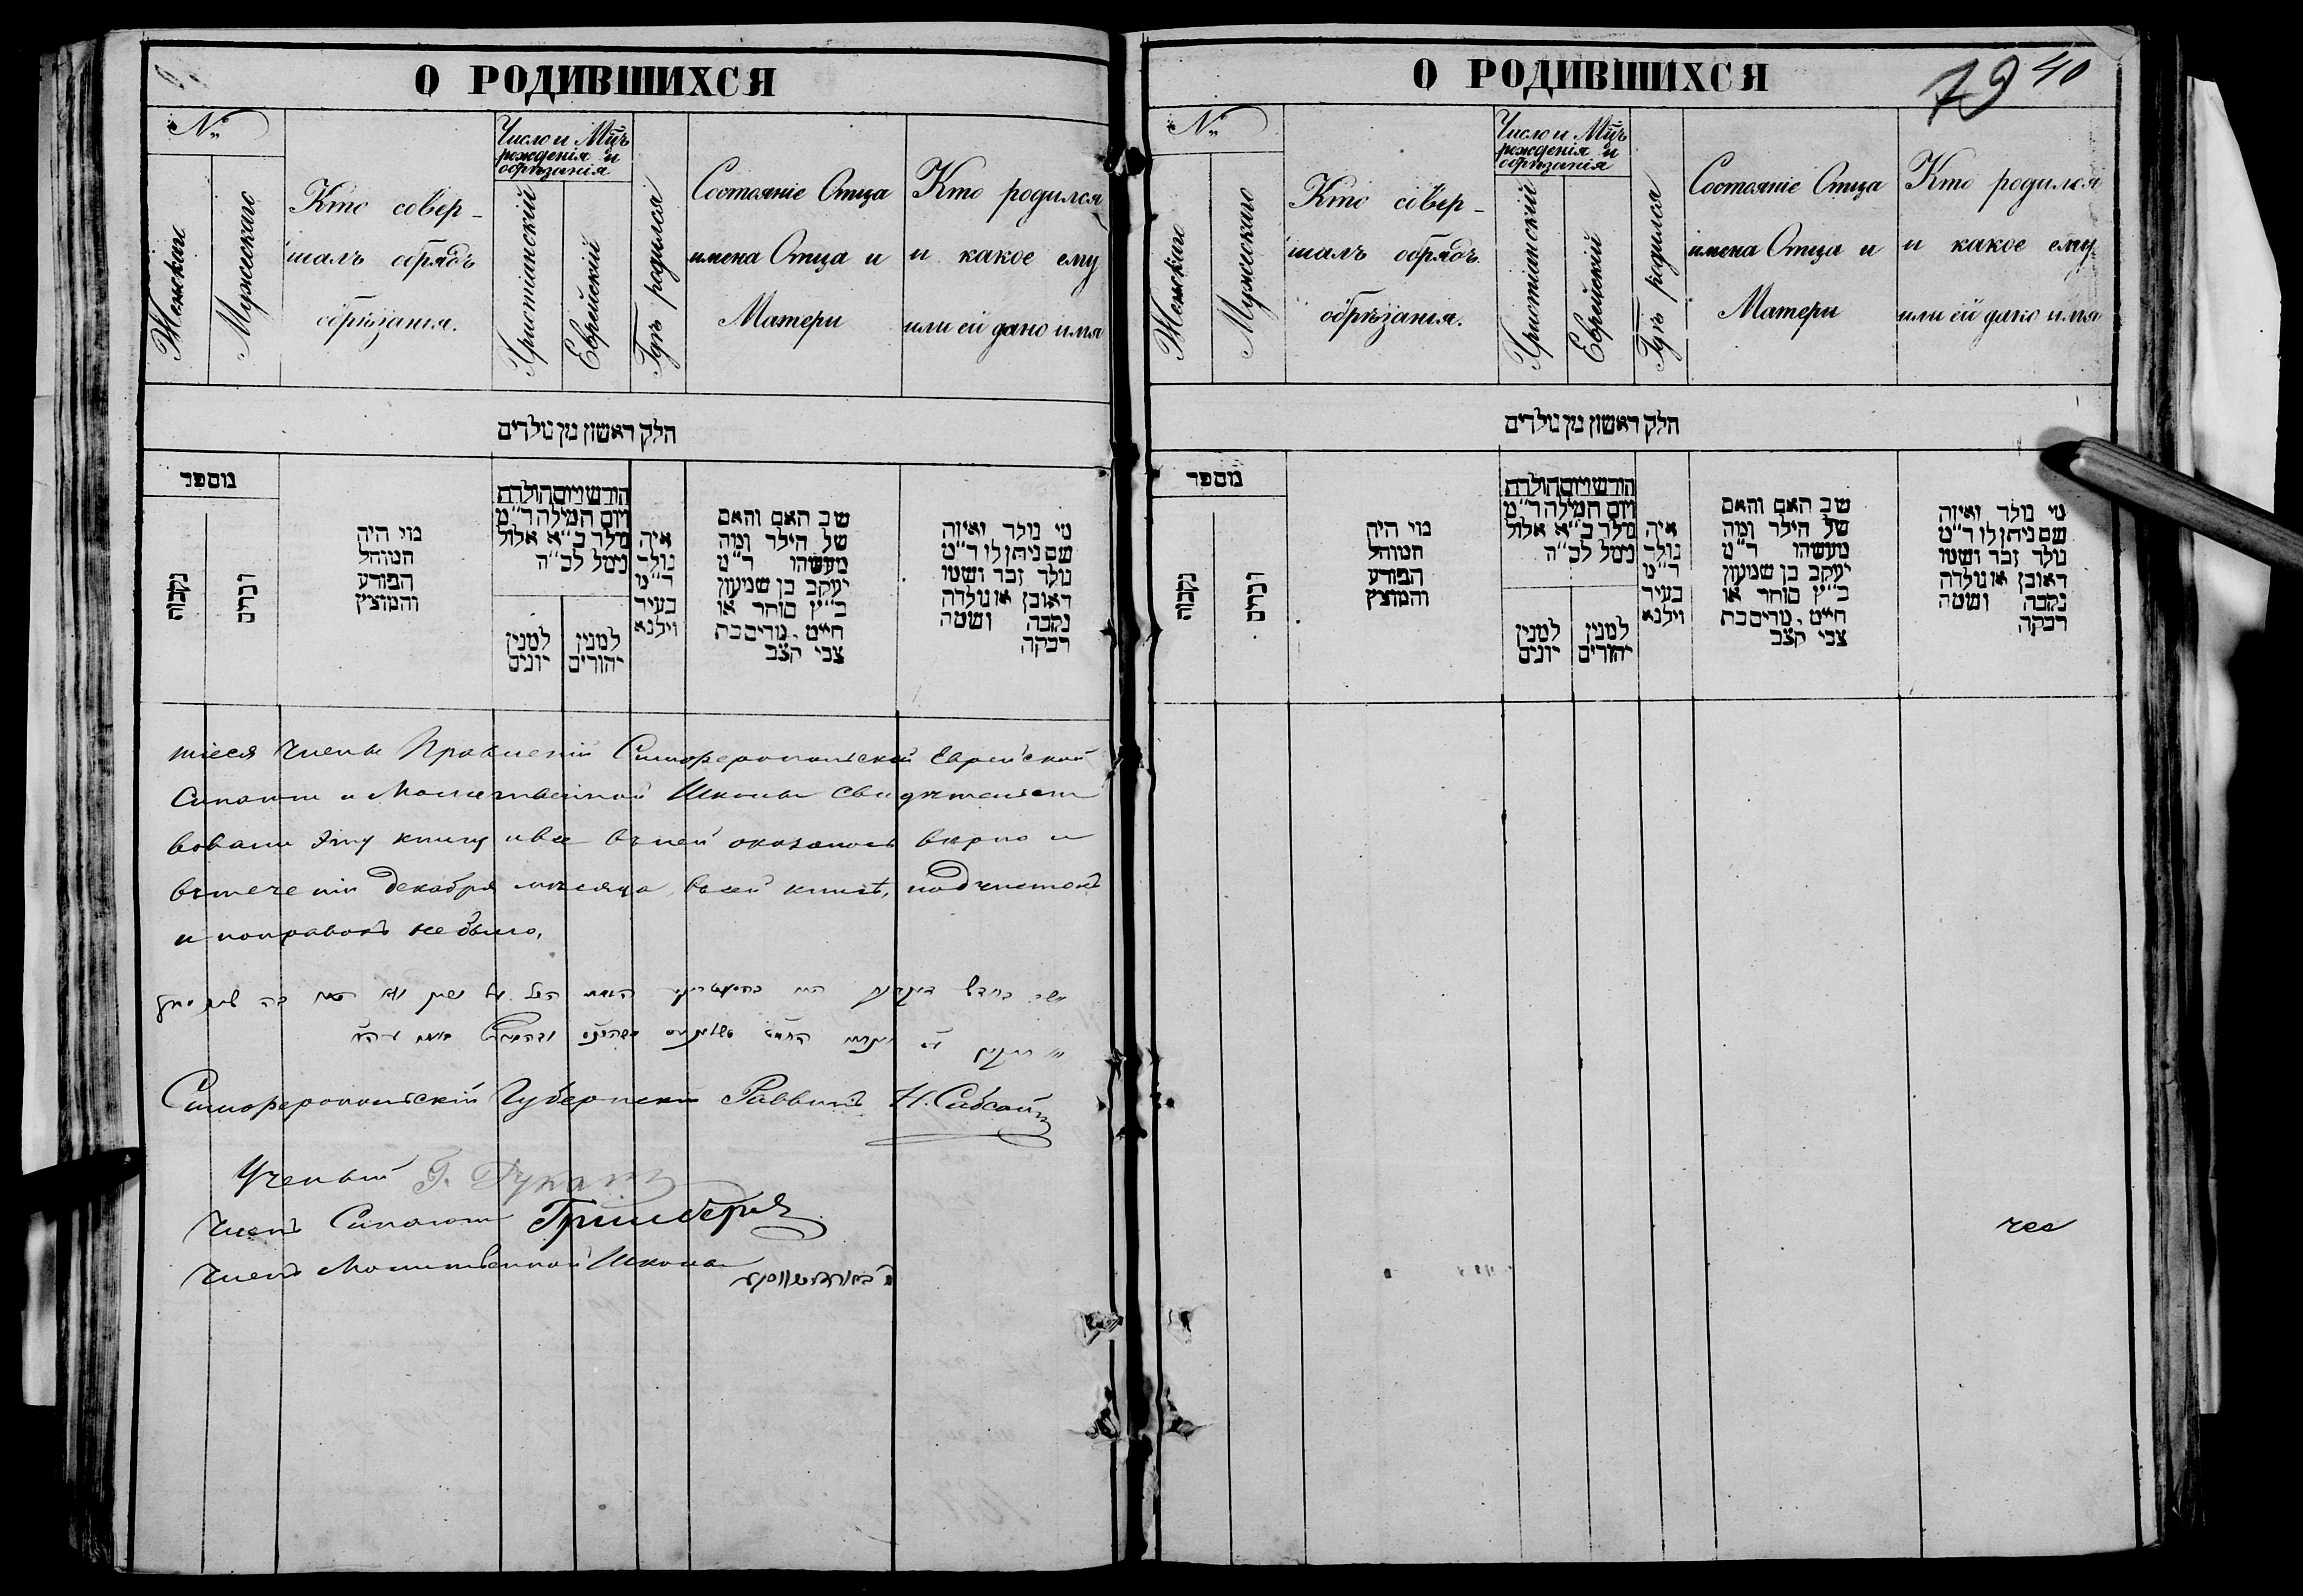 О РОДИВШИХСЯ
№
Женскаго
Мужескаго
Кто совер-
шалъ обрядъ
обрѣзанія.
Число и Мцъ
рожденія и
обрѣзанія
Христіанскій
Еврейскій
Гдѣ родился
Состояніе Отца
имена Отца и
Матери
Кто родился
и какое ему
или ей дано имя
חלק ראשון מן נולדים
מספר
נקבות
זכרים
מי היה
המוהל
הפורע
והמוצץ
חודש ויום הולדת
ויום המילה ר״מ
נולד כ״א אלול
נימל לכ״ה
למנין
יונים
למנין
יהודים
איה
נולד
ר״מ
בעיר
וילנא
שם האב והאם
של הילד ומה
מעשהו ר״מ
יעקב בן שמעון
כ״ץ סוחר או
חייט. מרים בת
צבי קצב
מי נולד ואיזה
שם ניתן לו ר״מ
נולד זכר ושמו
ראובן או נולדה
נקבה ושמה
רבקה
шіеся Члены Правленій Симферопольской Еврейской
Синагоги и Молитвенной Школы свидетельст
вовали эту книгу и все въ ней оказалось верно и
въ теченіи Декабря мѣсяца въ сей книгѣ, подчистокъ
и поправокъ не было.
Симферопольскій Губернскій Раввинъ Н. Сабсай
Ученый
Членъ Синагоги Гринбергъ
Членъ Молитвенной Школы
О РОДИВШИХСЯ
79 40
№
Женскаго
Мужескаго
Кто совер-
шалъ обрядъ
обрѣзанія.
Число и Мцъ
рожденія и
обрѣзанія
Христіанскій
Еврейскій
Гдѣ родился
Состояніе Отца
имена Отца и
Матери
Кто родился
и какое ему
или ей дано имя
חלק ראשון מן נולדים
מספר
נקבות
זכרים
מי היה
המוהל
הפורע
והמוצץ
חודש ויום הולדת
ויום המילה ר״מ
נולד כ״א אלול
נימל לכ״ה
למנין
יונים
למנין
יהודים
איה
נולד
ר״מ
בעיר
וילנא
שם האב והאם
של הילד ומה
מעשהו ר״מ
יעקב בן שמעון
כ״ץ סוחר או
חייט. מרים בת
צבי קצב
מי נולד ואיזה
שם ניתן לו ר״מ
נולד זכר ושמו
ראובן או נולדה
נקבה ושמה
רבקה